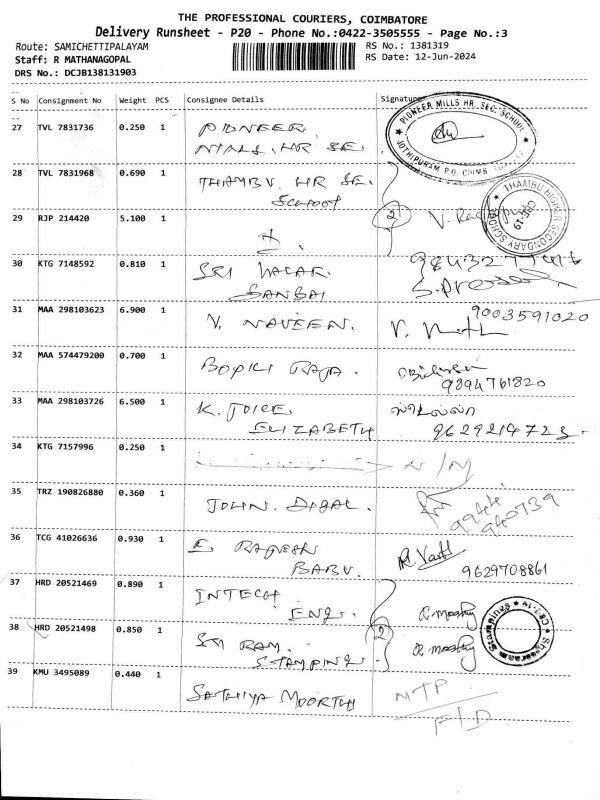 THE PROFESSIONAL COURIERS, COIMBATORE
Delivery Runsheet - P20 - Phone No.:0422-3505555 - Page No.:3
Route: SAMICHETTIPALAYAM
RS No.: 1381319
Staff: R MATHANAGOPAL
RS Date: 12-Jun-2024
DRS No.: DCJB138131903
S No Consignment No Weight PCS Consignee Details Signature
27 TVL 7831736 0.250 1 PIONEER
MILLS. HR SE.
PIONEER MILLS HR. SEC. SCHOOL
JOTHIPURAM P.O. COIMB
28 TVL 7831968 0.690 1 THAMBU. HR SE.
SCHOOL
THAMBU HIGHER SECONDARY SCHOOL
CBE-19
29 RJP 214420 5.100 1 D. 2
30 KTG 7148592 0.810 1 SRI
31 MAA 298103623 6.900 1 V. NAVEEN. 9003591020
32 MAA 574479200 0.700 1 RAJA. 9894761820
33 MAA 298103726 6.500 1 K. JOICE
ELIZABETH 9629214723
34 KTG 7157996 0.250 1 N/N
35 TRZ 190826880 0.360 1 JOHN. DIGAL. 9944
940739
36 TCG 41026636 0.930 1 E. RAJESH
BABU. 9629708861
37 HRD 20521469 0.890 1 INTECH
ENG.
38 HRD 20521498 0.850 1 SRI RAM. 2
STAMPING
Shreeram Stampings CBE-19
39 KMU 3495089 0.440 1 SATHIYA MOORTHI NTP
F/D